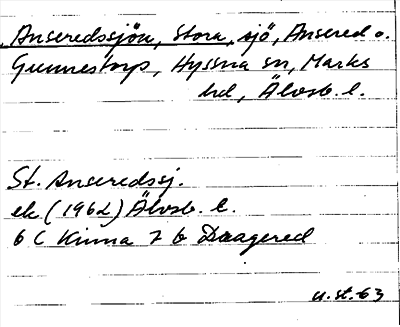 Anseredssjön, Stora, sjö, Ansered o.
Gunnestorp, Hyssna sn, Marks
hd, Älvsb. l.
St. Anseredssj.
ek (1962) Älvsb. l.
6 C Kinna 7 b Draagered
u.st. 63